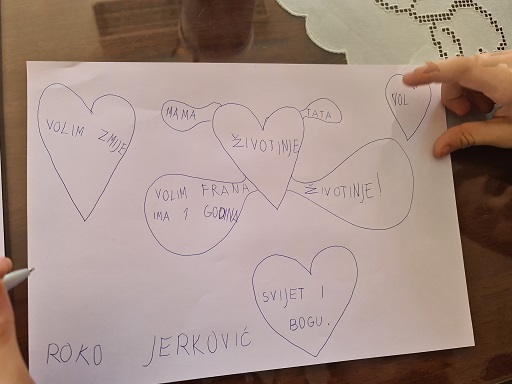 VOLIM ZMIJE
MAMA
ŽIVOTINJE
TATA
VOL
VOLIM FRANA
IMA 1 GODINA
ŽIVOTINJE!
SVIJET I
BOGU.
ROKO JERKOVIĆ